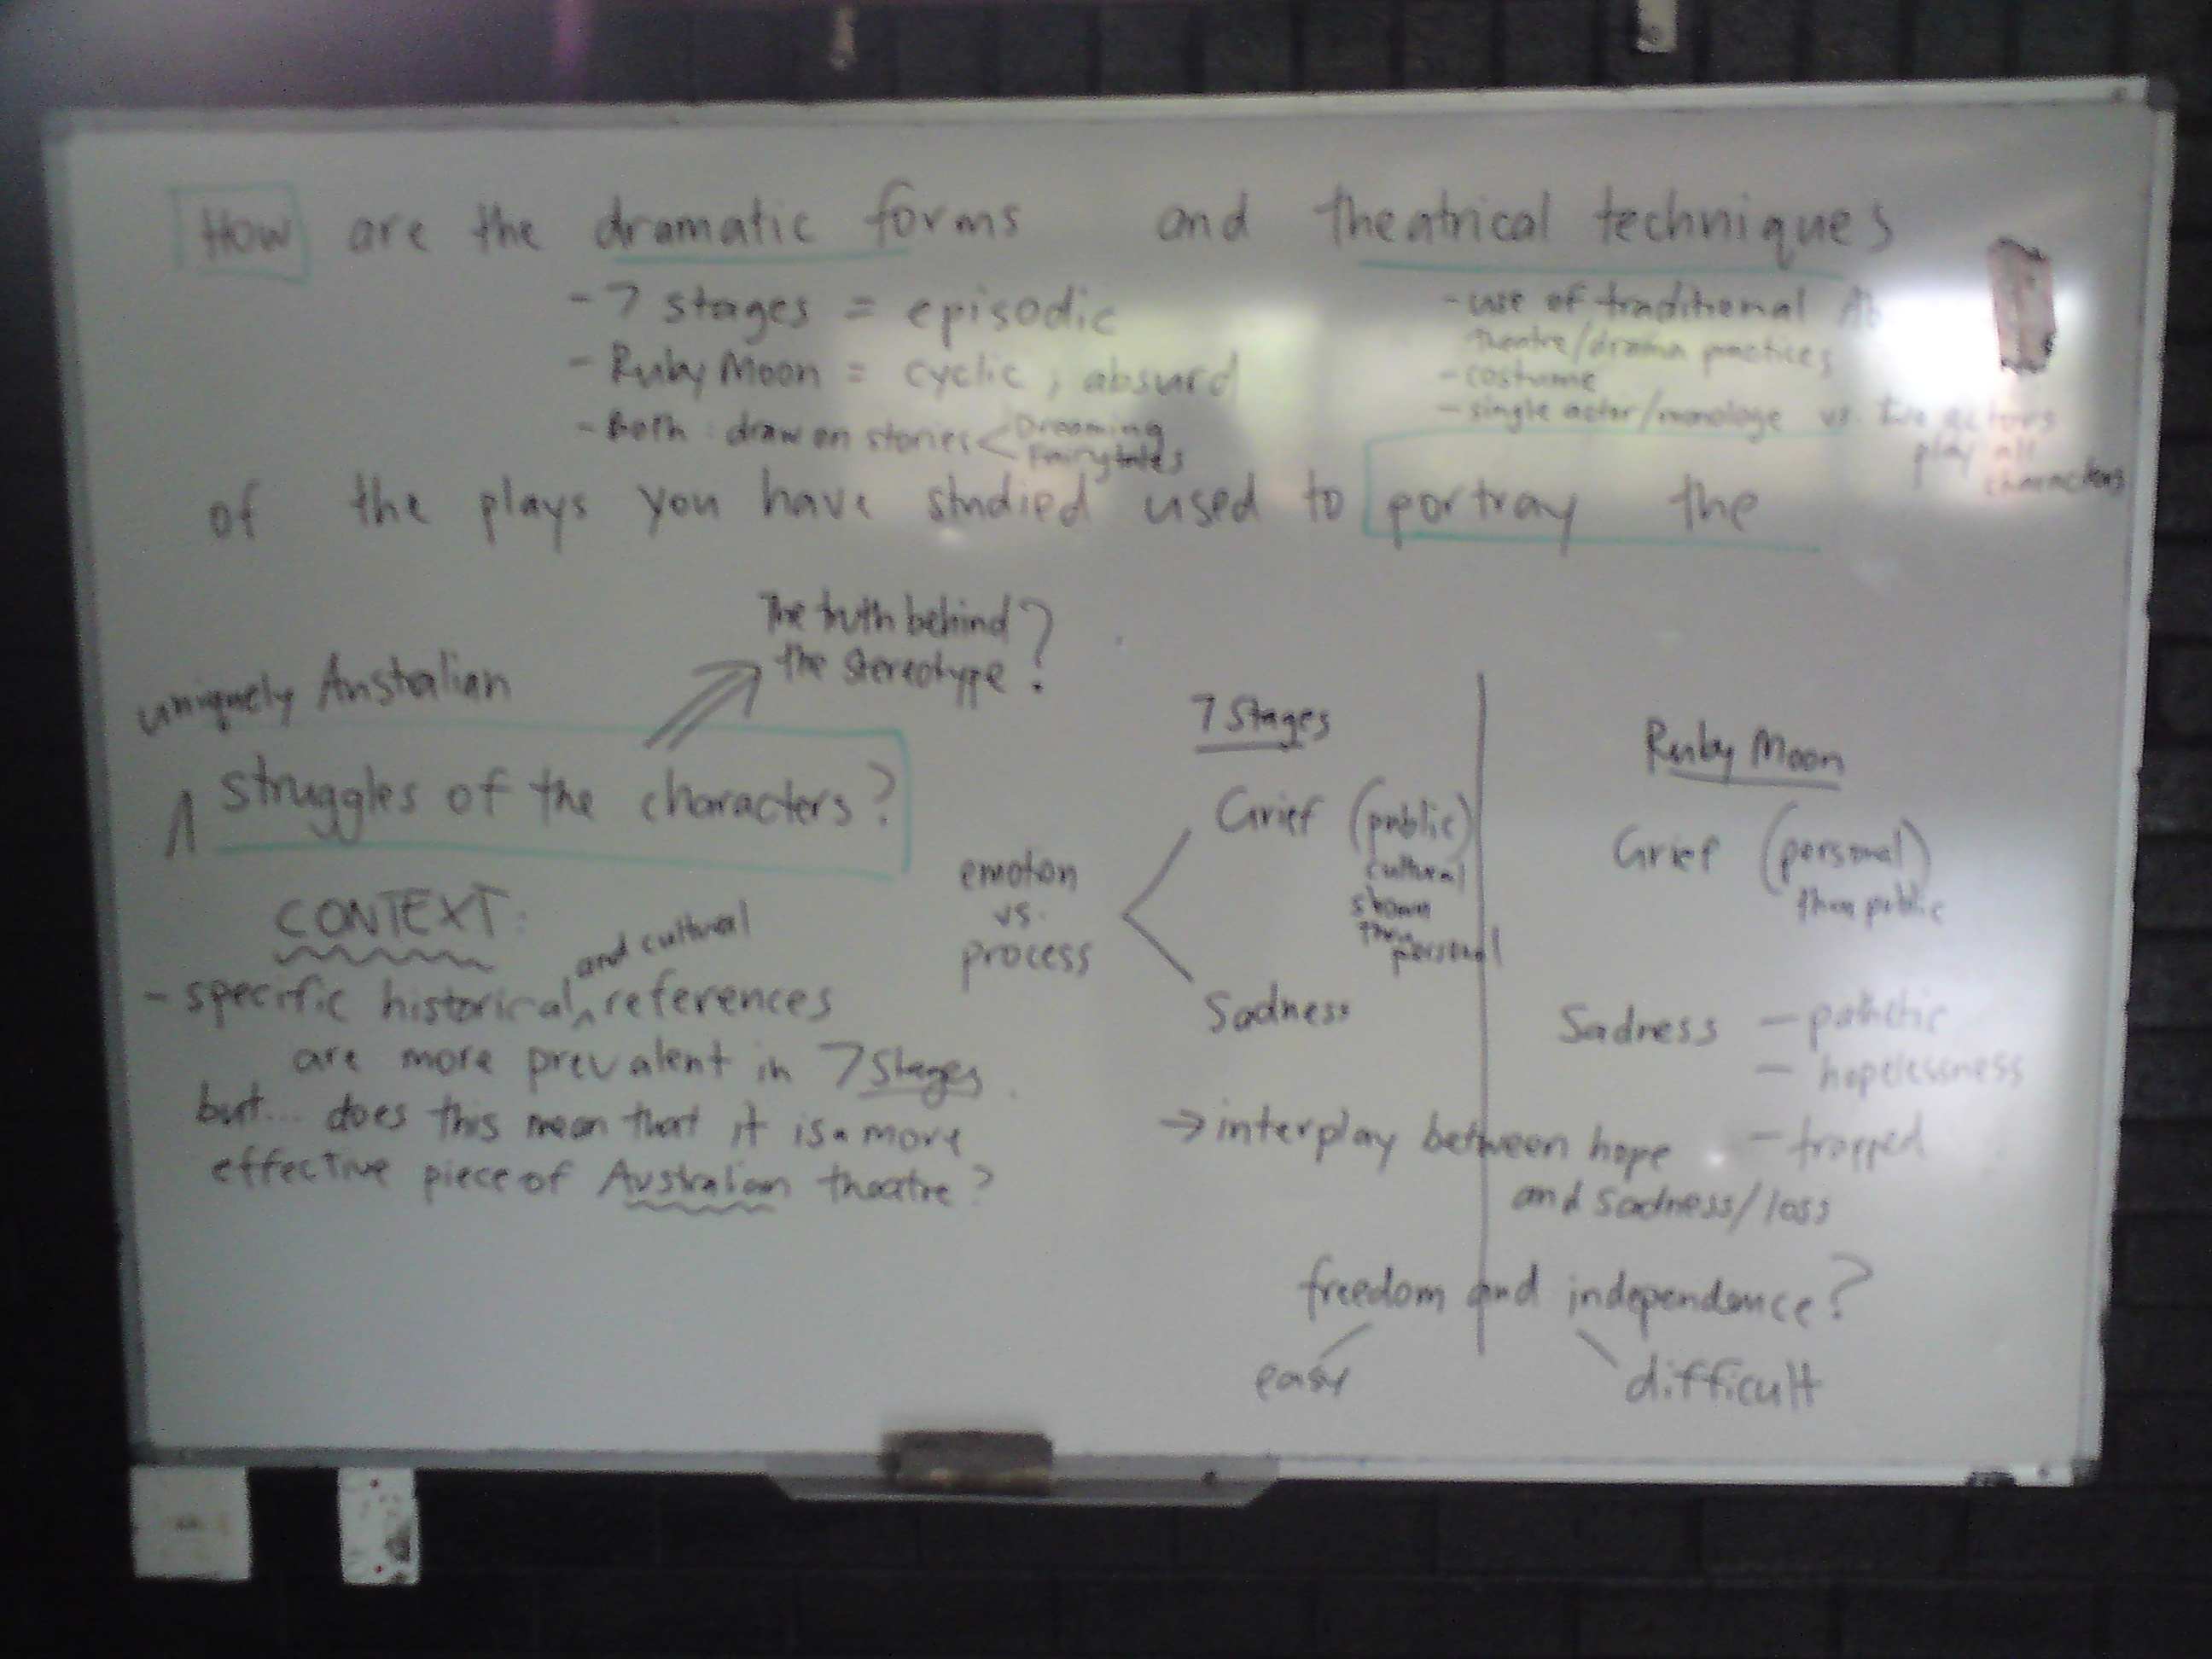 How are the dramatic forms and theatrical techniques
- 7 stages = episodic
- Ruby Moon = cyclic, absurd
- Both: draw on stories < Dreaming
Fairytales
- use of traditional
theatre/drama practices
- costume
- single actor/monologe vs two actors
play all
characters
of the plays you have studied used to portray the
The truth behind
the stereotype?
uniquely Australian
struggles of the characters?
CONTEXT:
and cultural
- specific historical references
are more prevalent in 7 Stages.
but... does this mean that it is a more
effective piece of Australian theatre?
emotion
vs.
process
7 Stages
Grief (public)
cultural
shown
then
personal
Sadness
Ruby Moon
Grief (personal)
then public
Sadness - pathetic
- hopelessness
- trapped
→ interplay between hope
and sadness/loss
freedom and independence?
easy
difficult